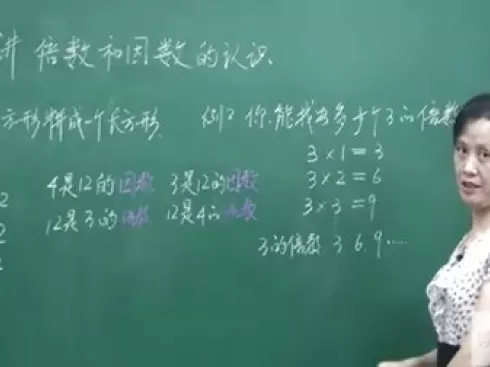 讲 倍数和因数的认识
方形拼成一个长方形.
例2 你能找出多少个3的倍数
3×1=3
3×2=6
3×3=9
3的倍数 3 6. 9.....
4是12的因数 3是12的因数
12是3的倍数 12是4的倍数
2
2